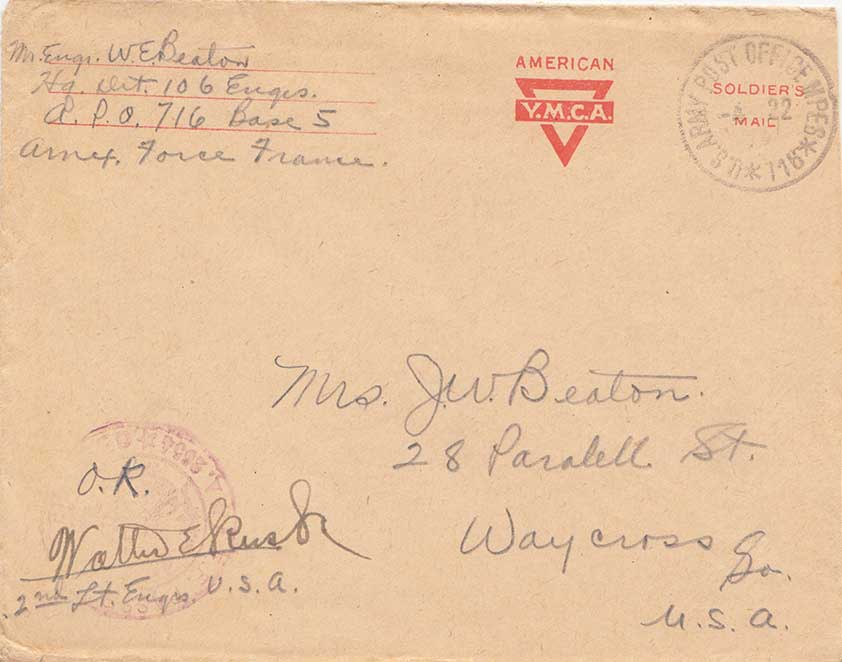 Mr. Engr. W.E. Beaton
Hq. Det. 106 Engrs.
A. P. O. 716 Base 5
Amex. Force France.
AMERICAN
Y.M.C.A.
SOLDIER'S
MAIL
U.S. ARMY POST OFFICE MPES
22
716
Mrs. J.W. Beaton.
28 Paralell St.
Waycross
Ga.
U.S.A.
O.K.
Walter E
2nd Lt. Engrs. U.S.A.